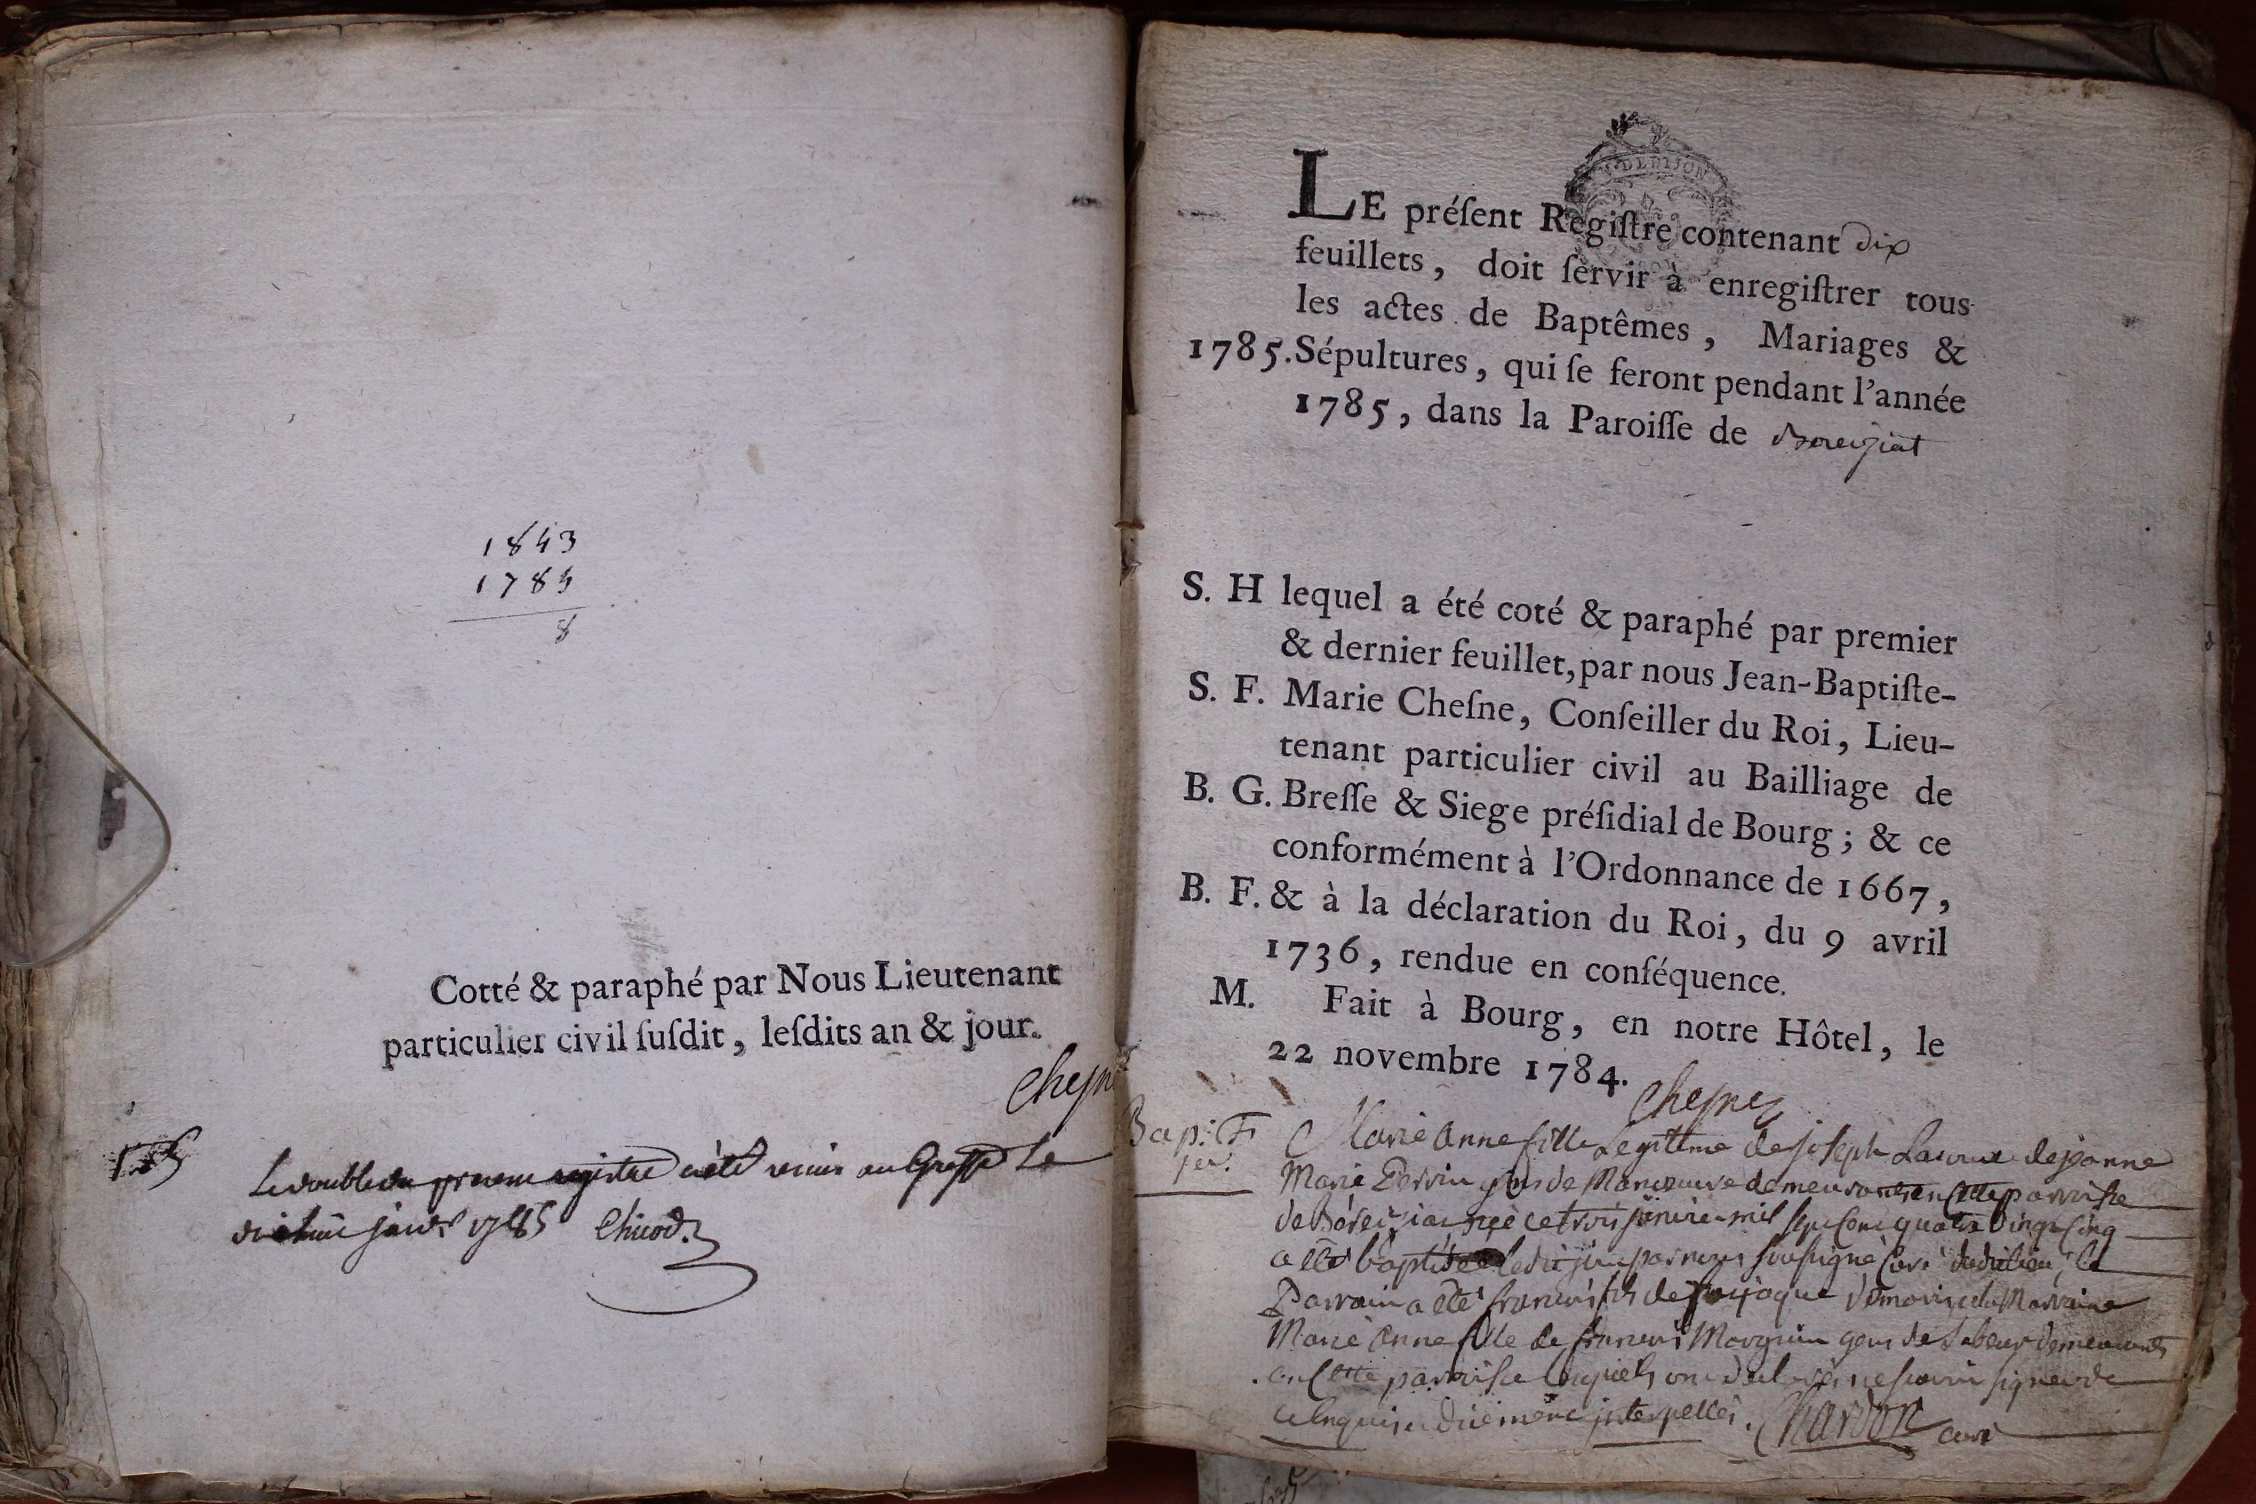 1843
1785
8
Cotté & paraphé par Nous Lieutenant
particulier civil ſuſdit, leſdits an & jour.
Cheſne
Le double du présent registre a été remis au Greffe le
dix huit janvr 1785 Chicod
DE DIJON
LE préſent Regiſtre contenant dix
feuillets, doit ſervir à enregiſtrer tous
les actes de Baptêmes, Mariages &
1785. Sépultures, qui ſe feront pendant l'année
1785, dans la Paroiſſe de Boreiziat
S. H lequel a été coté & paraphé par premier
& dernier feuillet, par nous Jean-Baptiſte-
S. F. Marie Cheſne, Conſeiller du Roi, Lieu-
tenant particulier civil au Bailliage de
B. G. Breſſe & Siege préſidial de Bourg; & ce
conformément à l'Ordonnance de 1667,
B. F. & à la déclaration du Roi, du 9 avril
1736, rendue en conſéquence.
M. Fait à Bourg, en notre Hôtel, le
22 novembre 1784.
Cheſne
Bap: F
1er.
Marie Anne fille Legitime de joseph et de jeanne
Marie Perrin gens de Manœuvre demeurants en cette parroisse
de née ce trois janvier mil sept cent quatre vingt cinq
a été baptisée ledit jour par nous soussigné Curé dudit lieu, le
Parrain a été françois fils de la Marraine
Marie Anne fille de françois gens de Labeur demeurants
en Cette parroisse lesquels ont declarés ne sçavoir signer de
ce Enquis et duement interpellés. Chardon curé